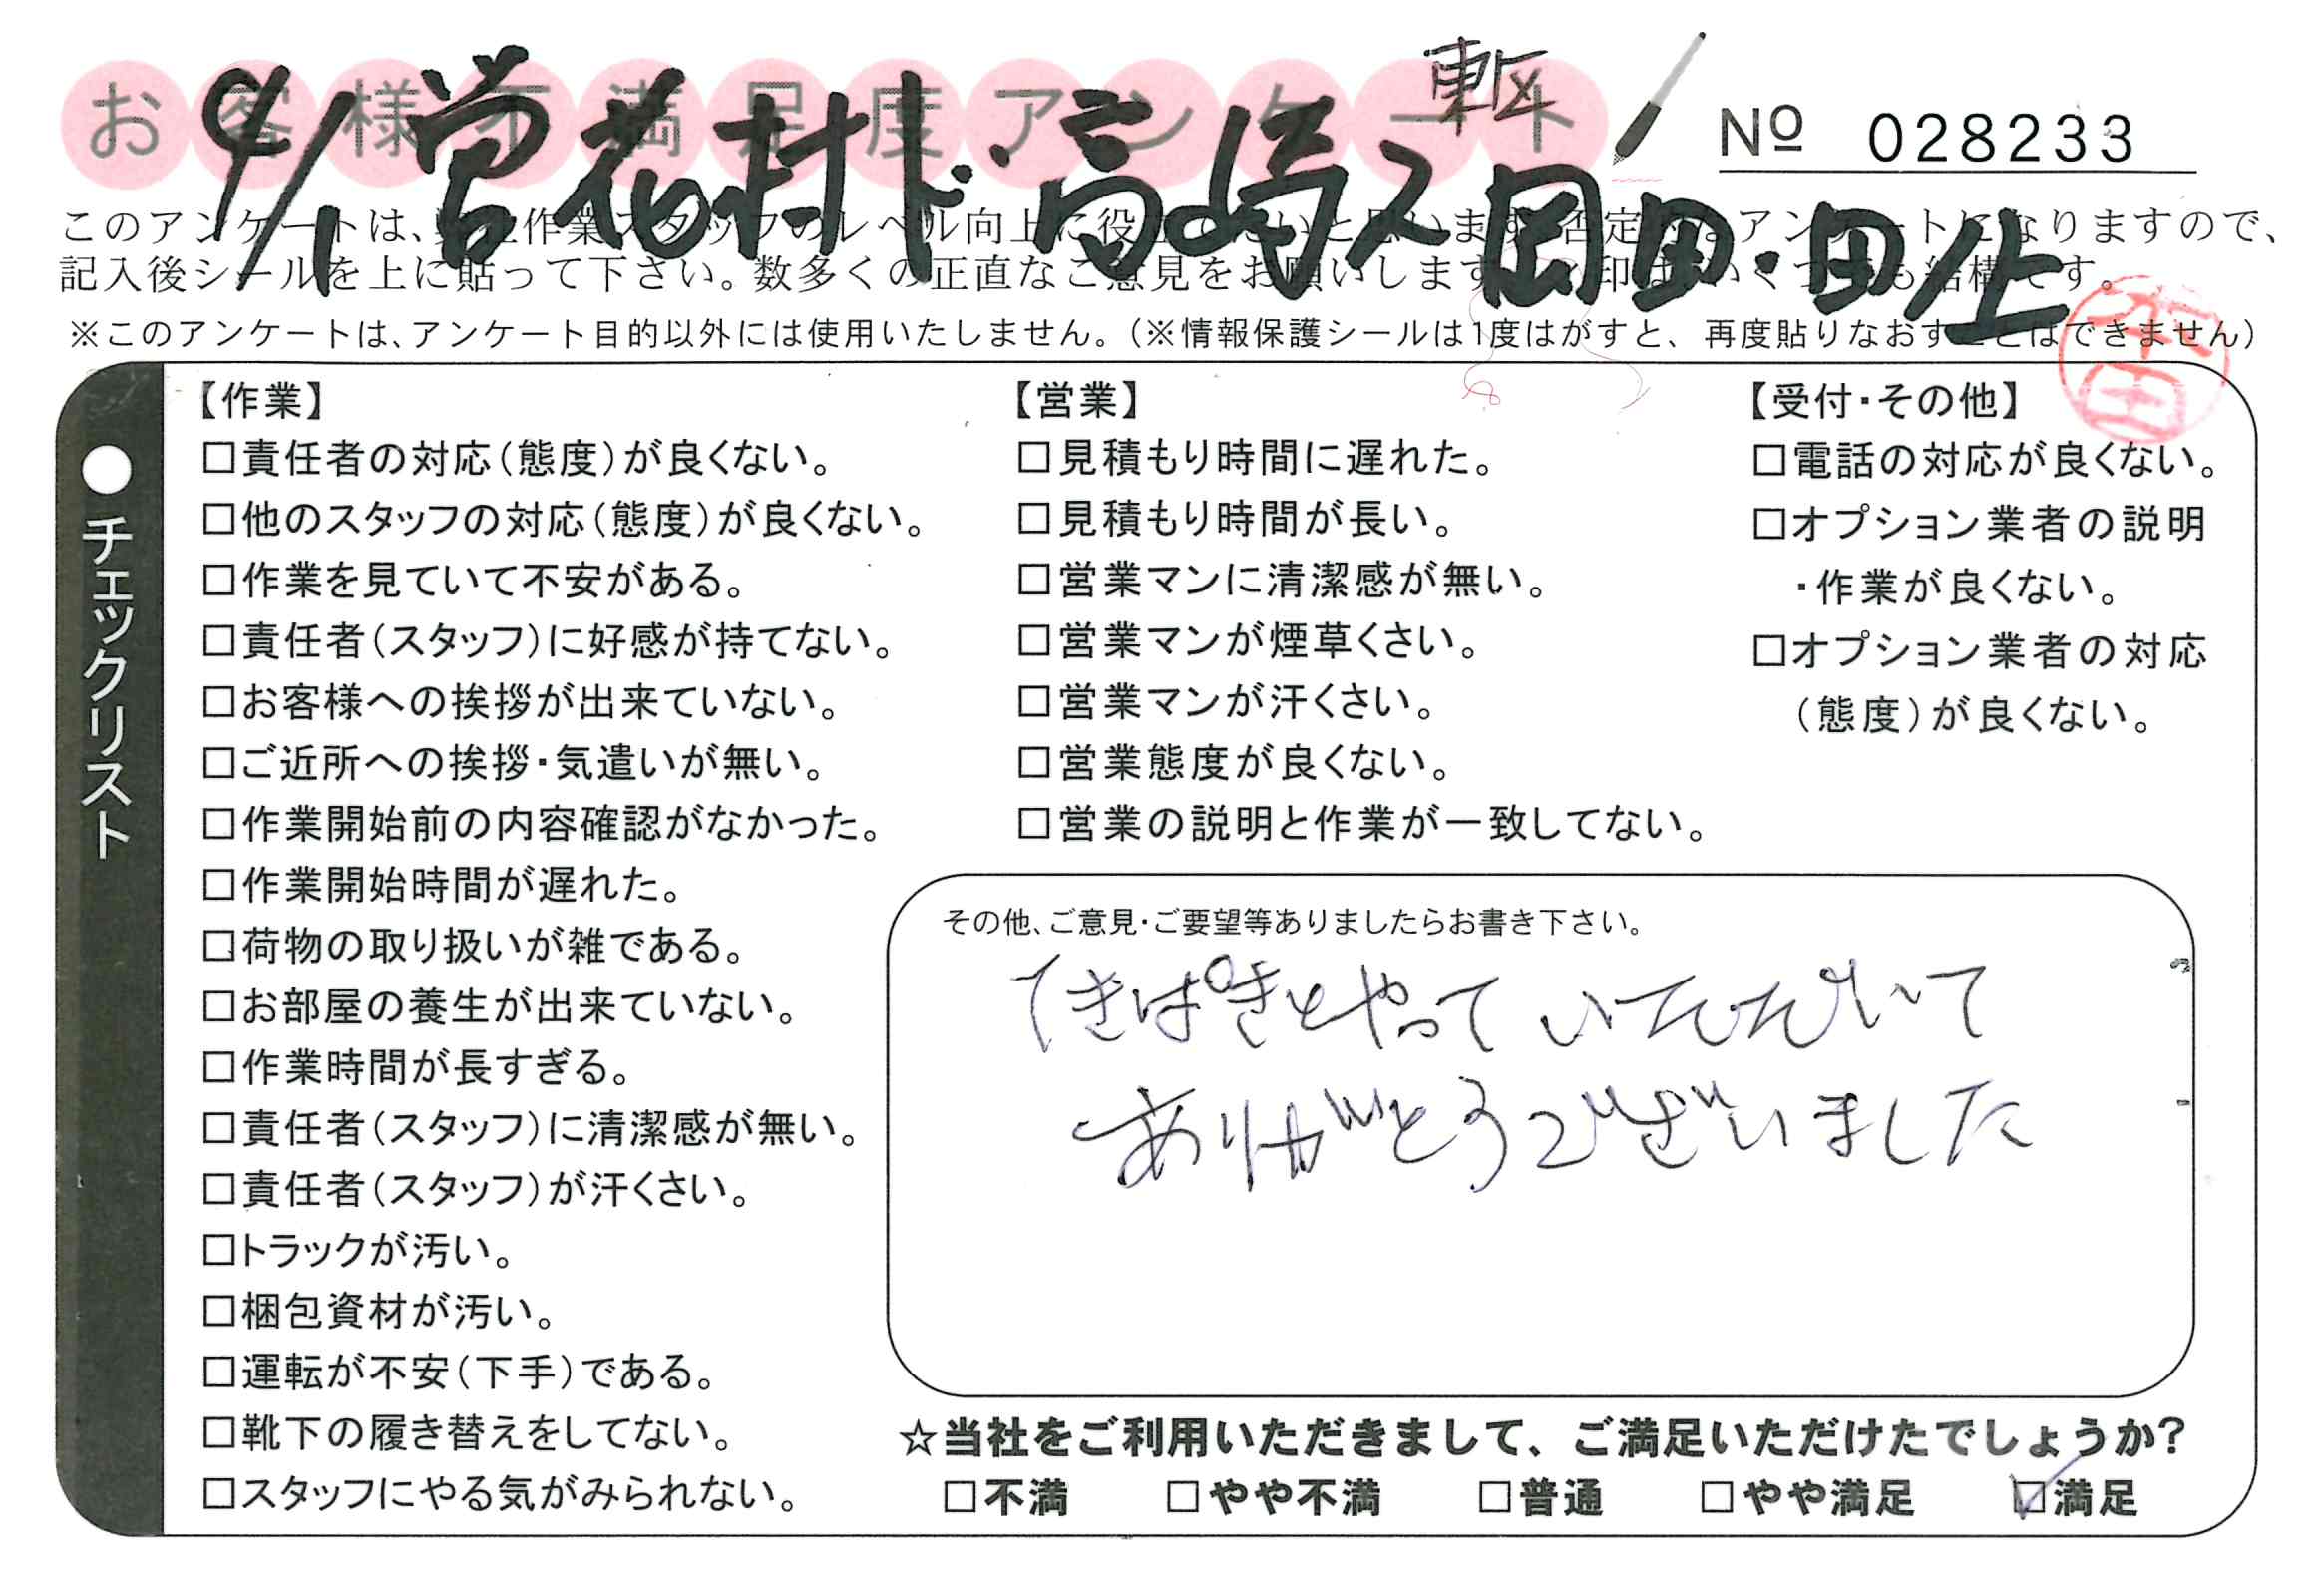 お客様不満足度アンケート
№ 028233
このアンケートは、
記入後シールを上に貼って下さい。数多くの正直なご意見をお願いします
※このアンケートは、アンケート目的以外には使用いたしません。(※情報保護シールは1度はがすと、再度貼りなおすことはできません)
●チェックリスト
【作業】
□責任者の対応(態度)が良くない。
□他のスタッフの対応(態度)が良くない。
□作業を見ていて不安がある。
□責任者(スタッフ)に好感が持てない。
□お客様への挨拶が出来ていない。
□ご近所への挨拶・気遣いが無い。
□作業開始前の内容確認がなかった。
□作業開始時間が遅れた。
□荷物の取り扱いが雑である。
□お部屋の養生が出来ていない。
□作業時間が長すぎる。
□責任者(スタッフ)に清潔感が無い。
□責任者(スタッフ)が汗くさい。
□トラックが汚い。
□梱包資材が汚い。
□運転が不安(下手)である。
□靴下の履き替えをしてない。
□スタッフにやる気がみられない。
【営業】
□見積もり時間に遅れた。
□見積もり時間が長い。
□営業マンに清潔感が無い。
□営業マンが煙草くさい。
□営業マンが汗くさい。
□営業態度が良くない。
□営業の説明と作業が一致してない。
【受付・その他】
□電話の対応が良くない。
□オプション業者の説明
・作業が良くない。
□オプション業者の対応
(態度)が良くない。
その他、ご意見・ご要望等ありましたらお書き下さい。
てきぱきとやって いただいて
ありがとうございました
☆当社をご利用いただきまして、ご満足いただけたでしょうか?
□不満 □やや不満 □普通 □やや満足 ☑満足